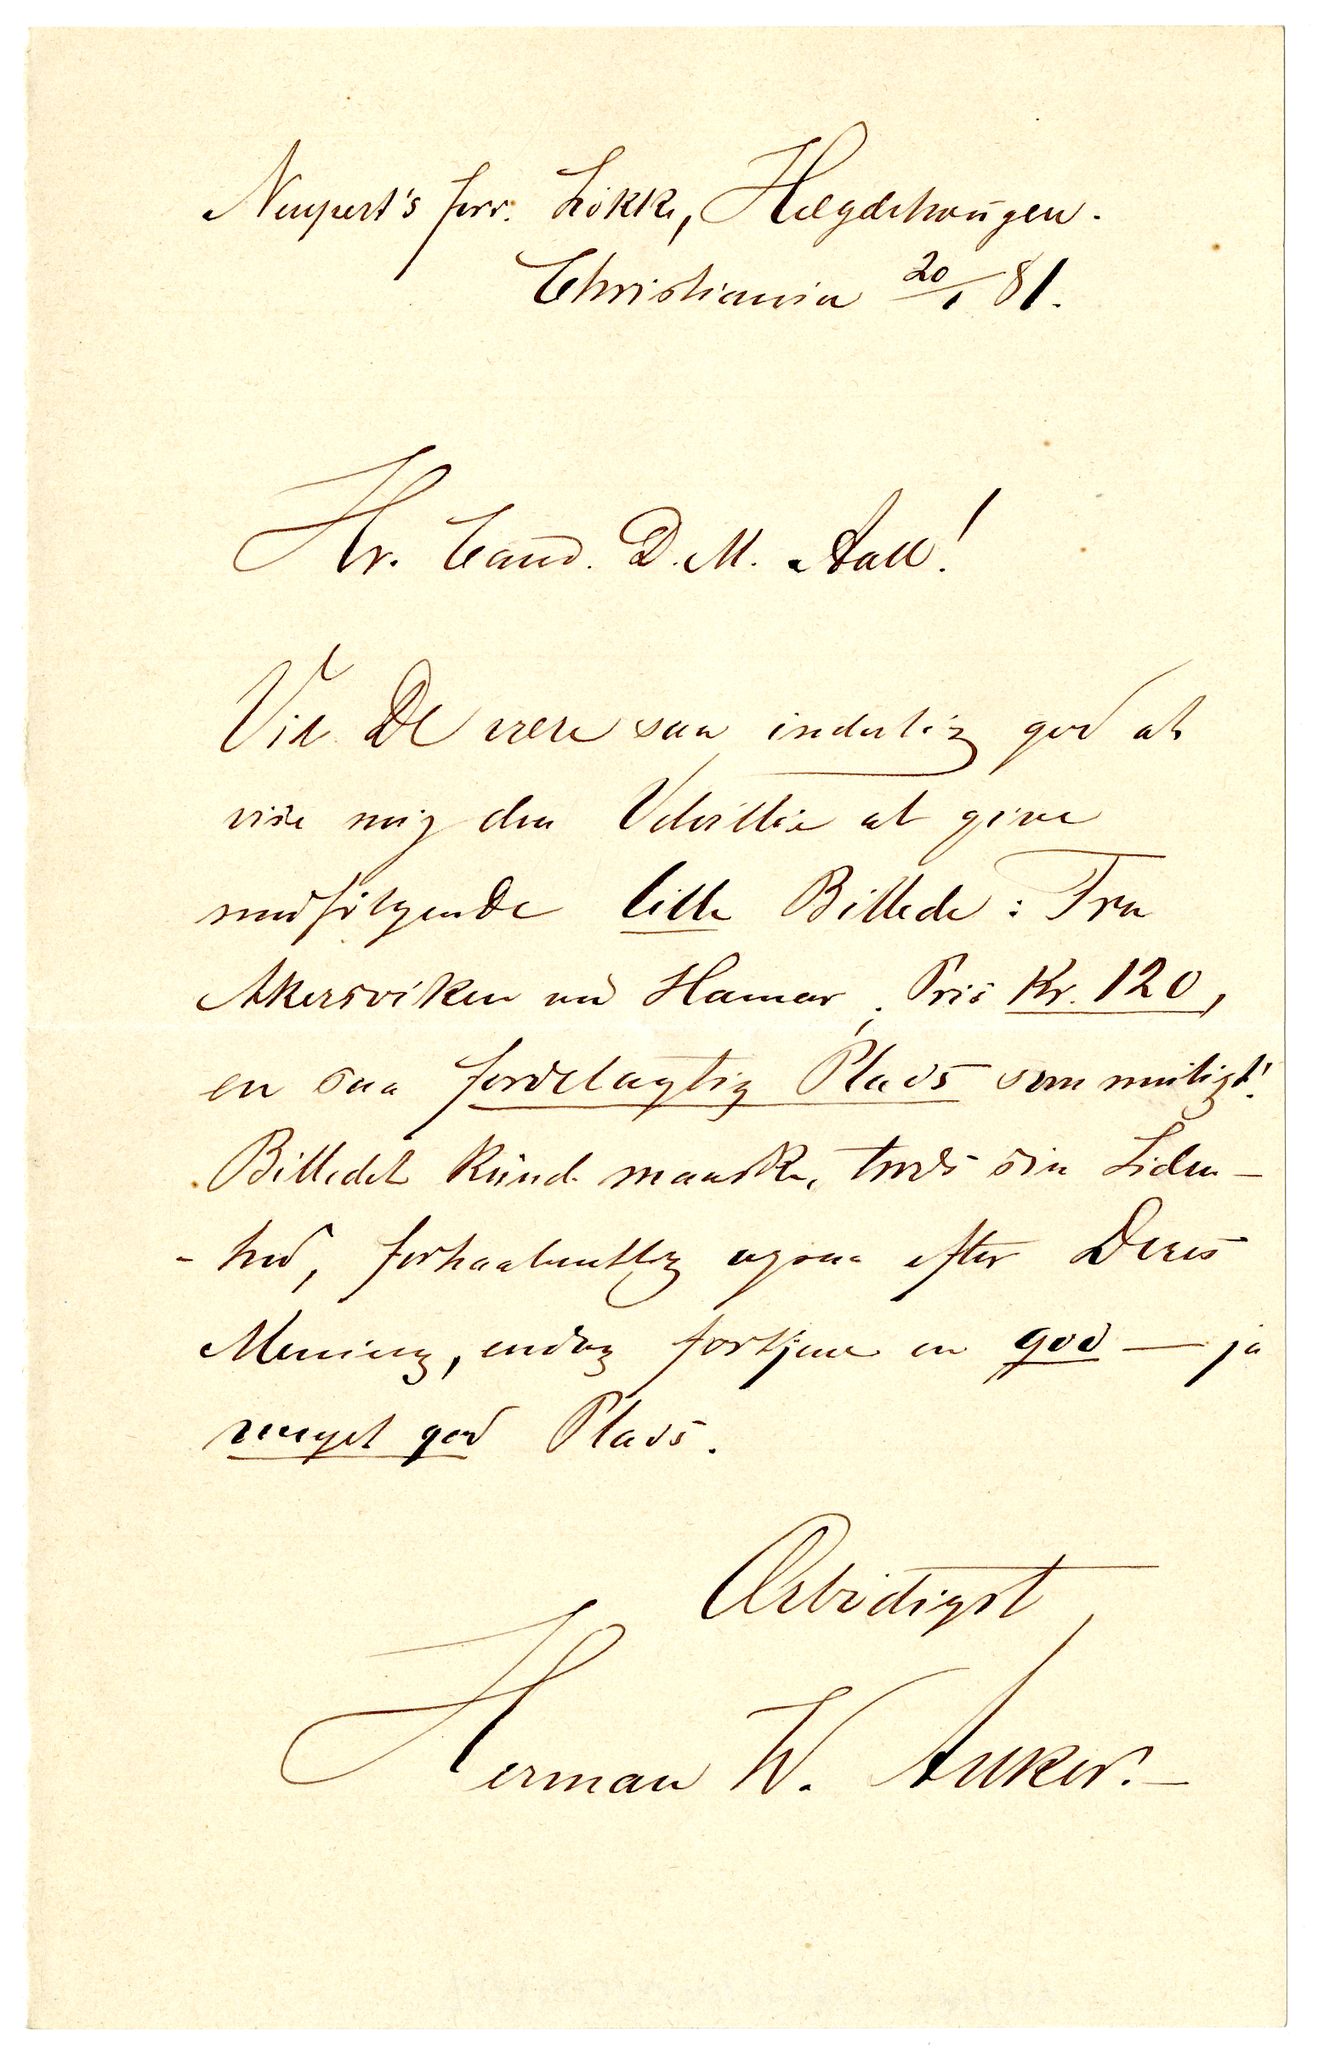 Neupert's forr. Løkke, Hægdehaugen.
Christiania 20/1 81.
Hr. Cand. D. M. Aall!
Vil De være saa inderlig god at
vise mig den Velvillie at give
medfølgende lille Billede: Fra
Akersviken ved Hamar, Pris Kr. 120,
en saa fordelagtig Plads som muligt!
Billedet kunde maaske, trods sin Liden-
-hed, forhaabentlig ogsaa efter Deres
Mening, endog fortjene en god — ja
meget god Plads.
Ærbødigst
Herman W. Anker. —